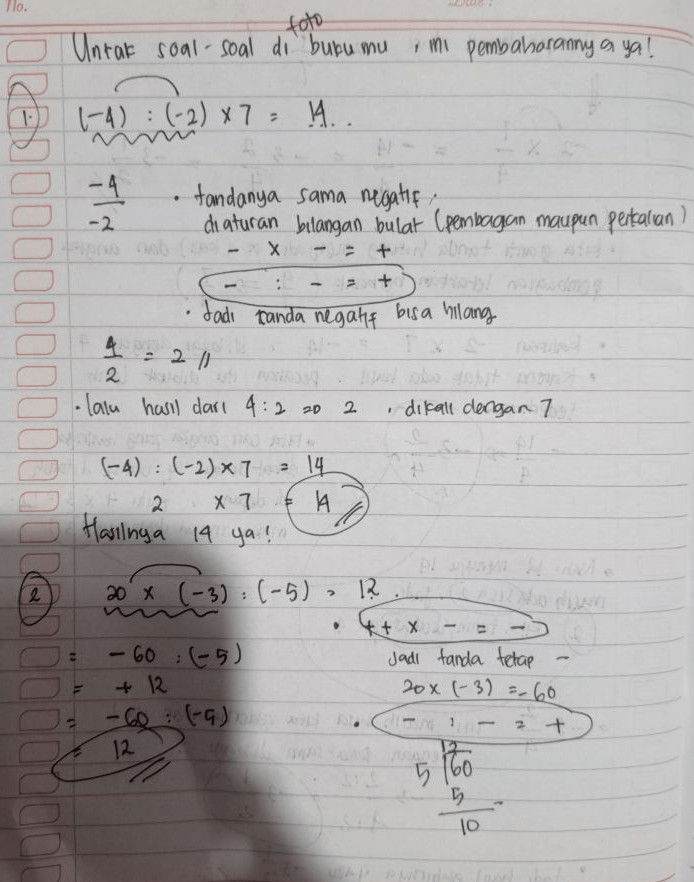 No.
foto
Untuk soal-soal di bukumu, ini pembahasannya ya!
1. (-4) : (-2) × 7 = 14..
-4
-2
• tandanya sama negatif,
diaturan bilangan bulat (pembagan maupun perkalian)
- × - = +
- : - = +
• Jadi tanda negatif bisa hilang
4
2
= 2 //
• lalu hasil dari 4 : 2 => 2, dikali dengan 7
(-4) : (-2) × 7 = 14
2 × 7 = 14
Hasilnya 14 ya!
2 20 × (-3) : (-5) = 12.
• ++ × - = -
= -60 : (-5)
Jadi tanda tetap -
= + 12
20 × (-3) = -60
= -60 : (-5)
• - : - = +
= 12
12
5 60
5 -
10